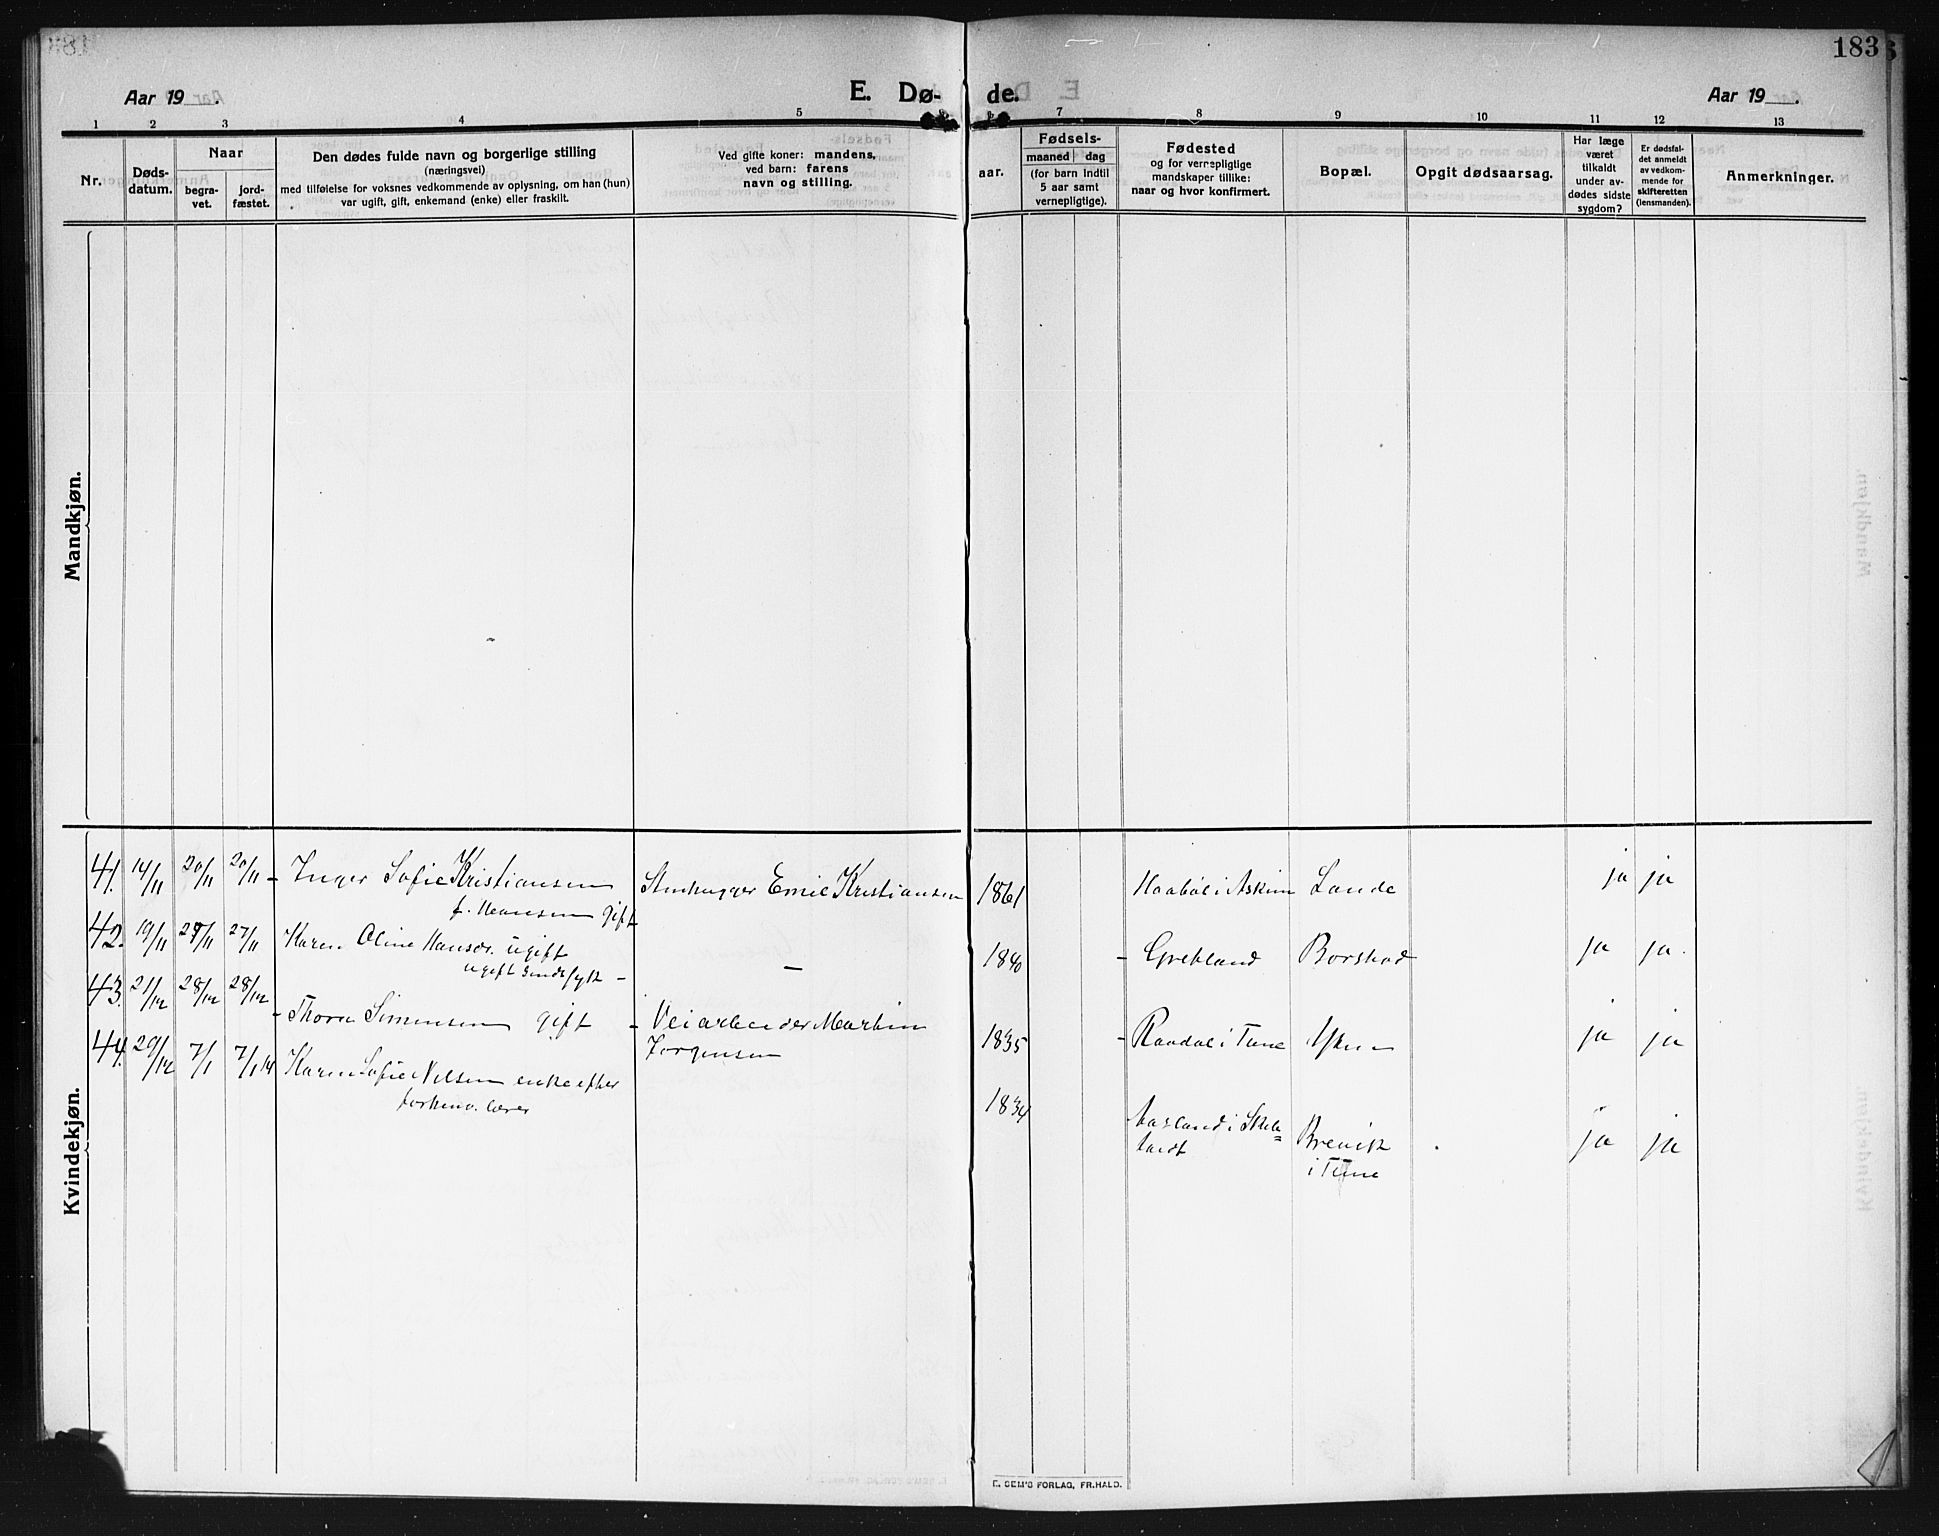 183
Aar 19
E. Dø- de.
Aar 19
1 2 3 4 5 7 8 9 10 11 12 13
Nr.
Døds-
datum.
Naar
begra-
vet.
jord-
fæstet.
Den dødes fulde navn og borgerlige stilling
(næringsvei)
med tilføielse for voksnes vedkommende av oplysning, om han (hun)
var ugift, gift, enkemand (enke) eller fraskilt.
Ved gifte koner: mandens,
ved barn: farens
navn og stilling.
aar.
Fødsels-
maaned dag
(for barn indtil
5 aar samt
vernepligtige).
Fødested
og for vernepligtige
mandskaper tillike:
naar og hvor konfirmert.
Bopæl.
Opgit dødsaarsag.
Har læge
været
tilkaldt
under av-
dødes sidste
sygdom?
Er dødsfal-
det anmeldt
av vedkom-
mende for
skifteretten
(lensmanden).
Anmerkninger.
Mandkjøn.
Kvindekjøn.
41. 14/11 20/11 20/11 - Inger Sofie Kristiansen Stenhugger Emil Kristiansen 1861 Haabøl i Askim Lande ja ja
f. Hansen gift
42. 19/11 27/11 27/11 Karen Oline Hansdr. ugift - 1840 - Grekland Borshod ja ja.
ugift sindssyk -
43. 21/12 28/12 28/12 - Thora Simensen gift - Veiarbeider Martin 1835 - Raadal i Tune ja ja
Jørgensen
44. 29/12 7/1 7/1 14 Karen Sofie Nilsen enke efter 1834 Aasland i Skib= Brevik ja ja
forhenv. lærer tvedt i Tune
E. SEM'S FORLAG, FR.HALD.